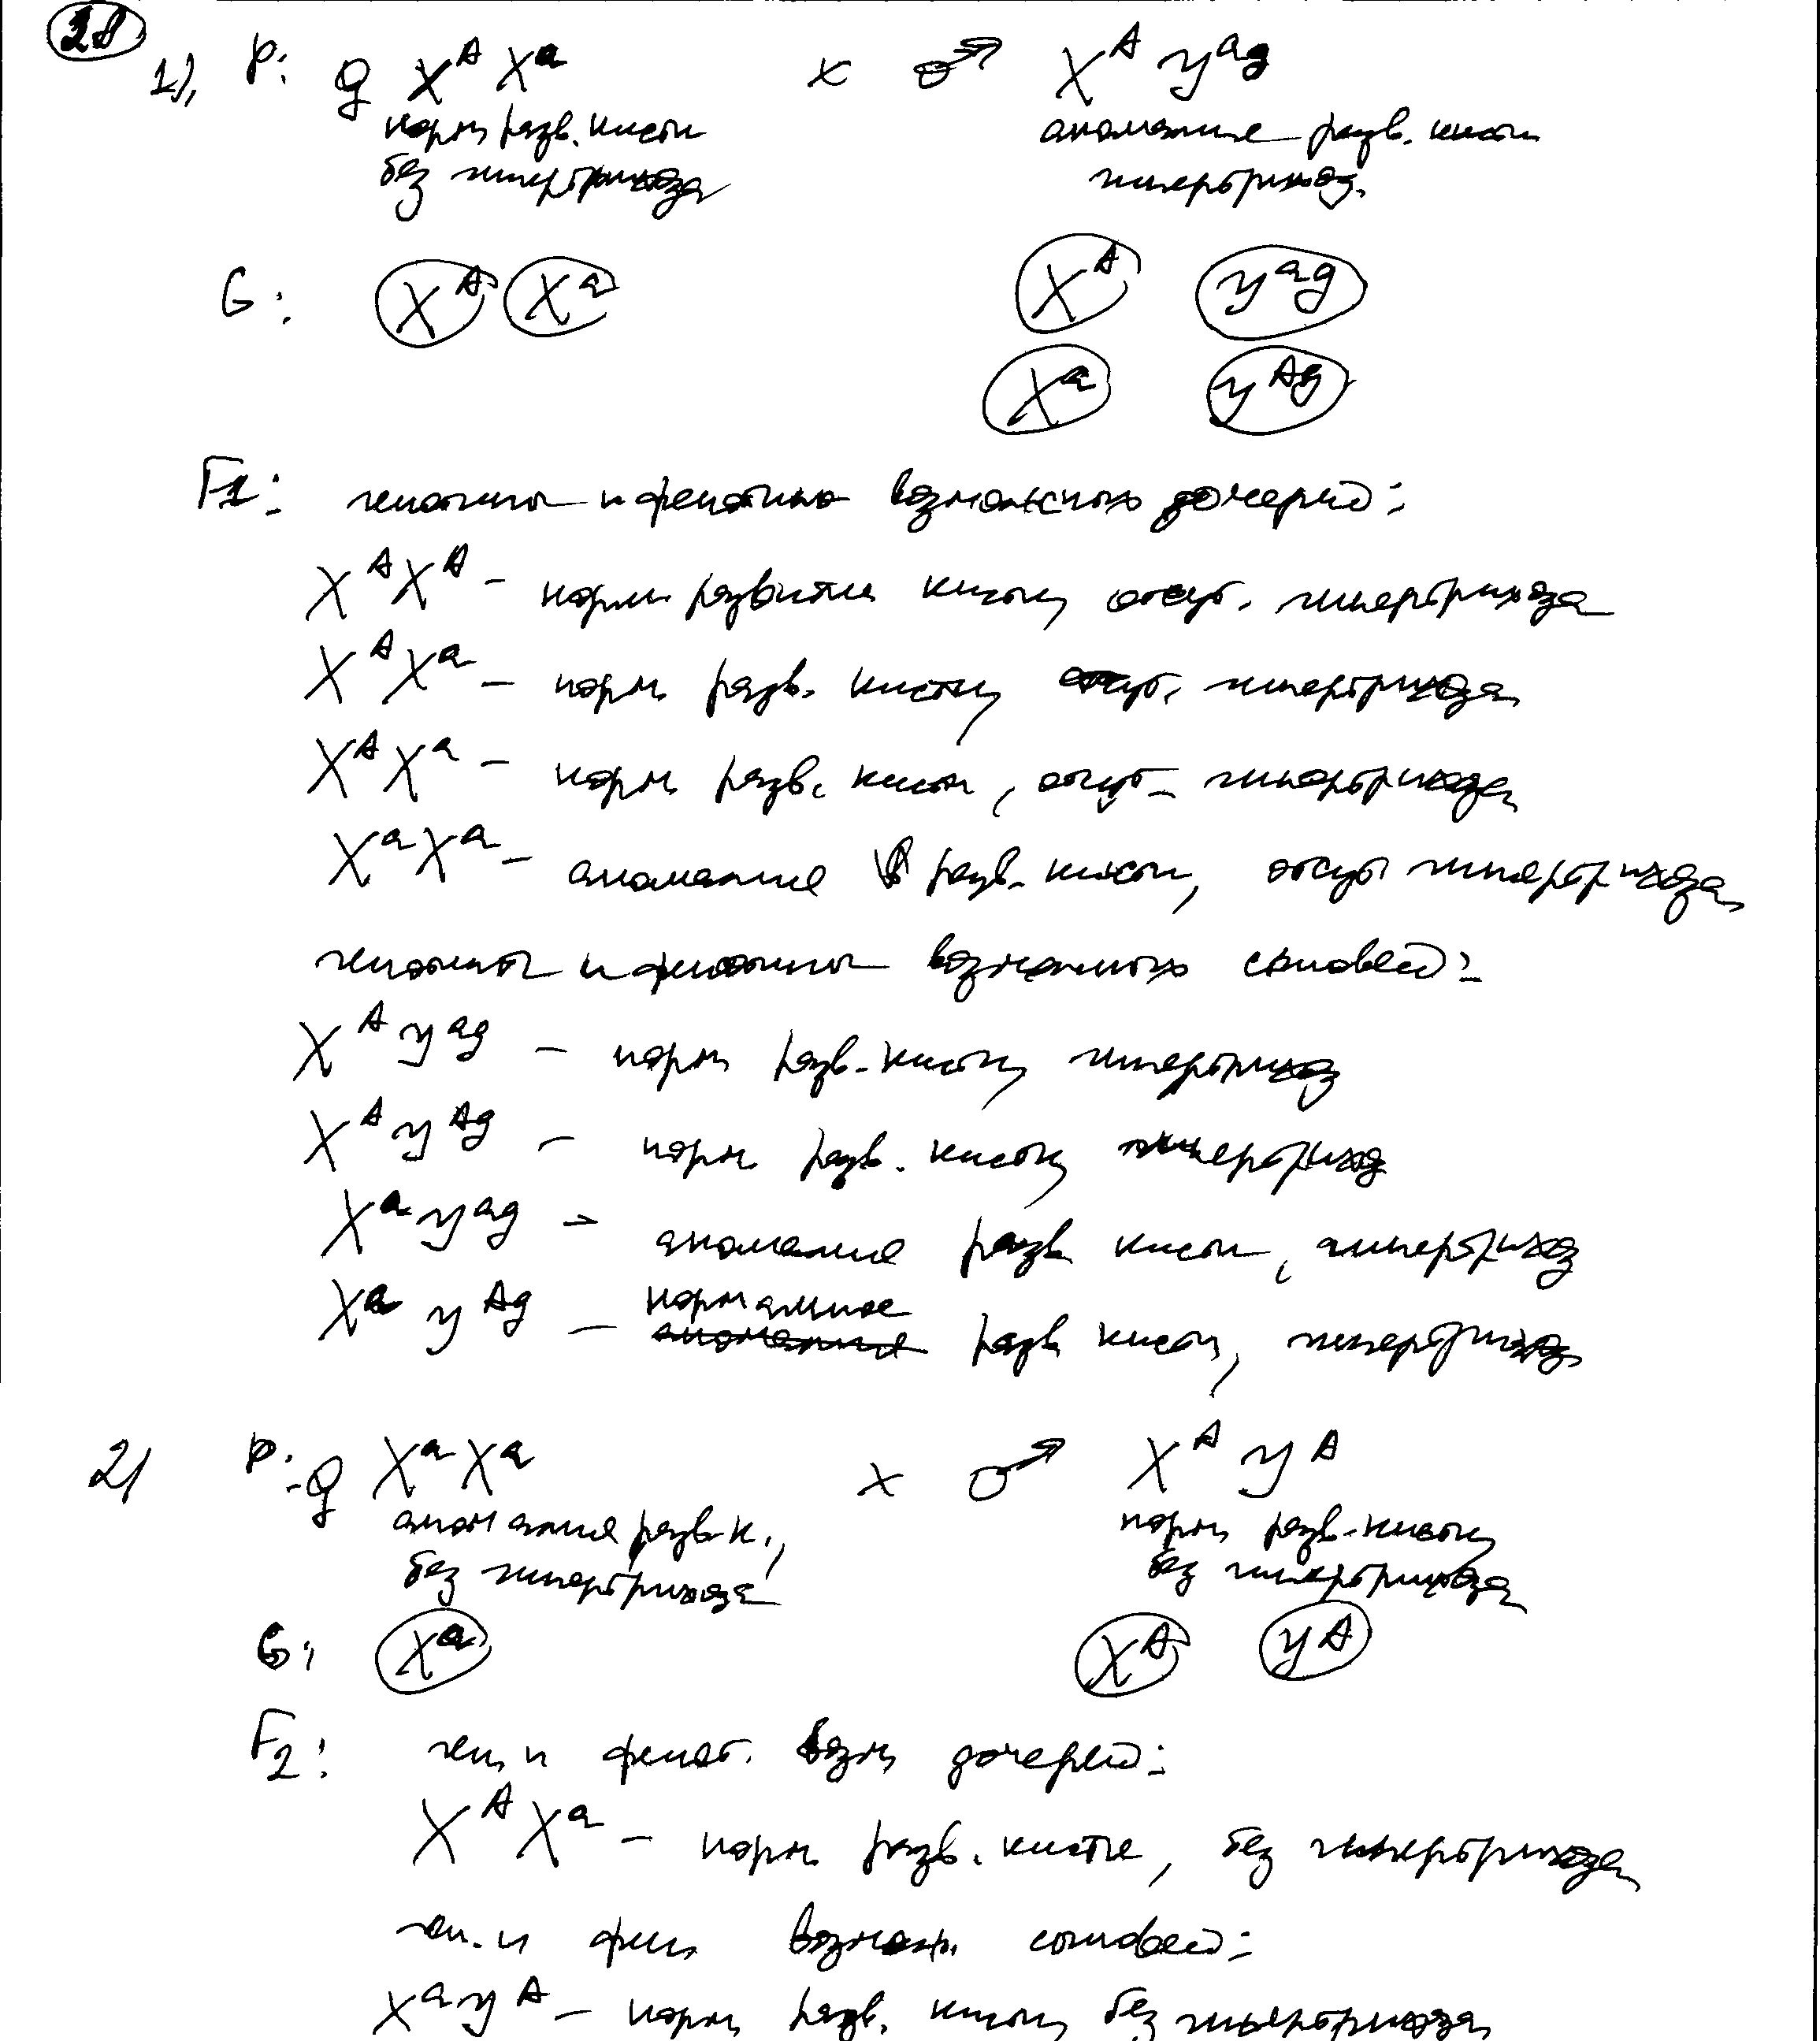 28
1). P: ♀ X^A X^a x ♂ X^A y^ag
норм разв. кисти аномалие разв. кисти
без гипертрихоза гипертрихоз.
G: X^A X^a X^A y^ag
X^a y^Ag
F1: генотипы и фенотипы возможных дочерей:
X^A X^A – норм. развитие кисти, отсут. гипертрихоза
X^A X^a – норм. разв. кисти, отсут. гипертрихоза
X^A X^a – норм. разв. кисти, отсут – гипертрихоза
X^a X^a – аномалие разв. кисти, отсут гипертрихоза
генотипы и фенотипы возможных сыновей:
X^A y^ag – норм разв. кисти, гипертрихоз
X^A y^Ag – норм. разв. кисти, гипертрихоз
X^a y^ag – аномалие разв кисти, гипертрихоз
X^a y^Ag – нормальное разв кисти, гипертрихоз
2) P: ♀ X^a X^a x ♂ X^A y^A
аномалие разв к., норм разв. кисти,
без гипертрихоза без гипертрихоза
G: X^a X^A y^A
F2: ген и фенот. возм дочерей:
X^A X^a – норм. разв. кисти, без гипертрихоза
ген. и фен возможн. сыновей:
X^a y^A – норм разв. кисти, без гипертрихоза